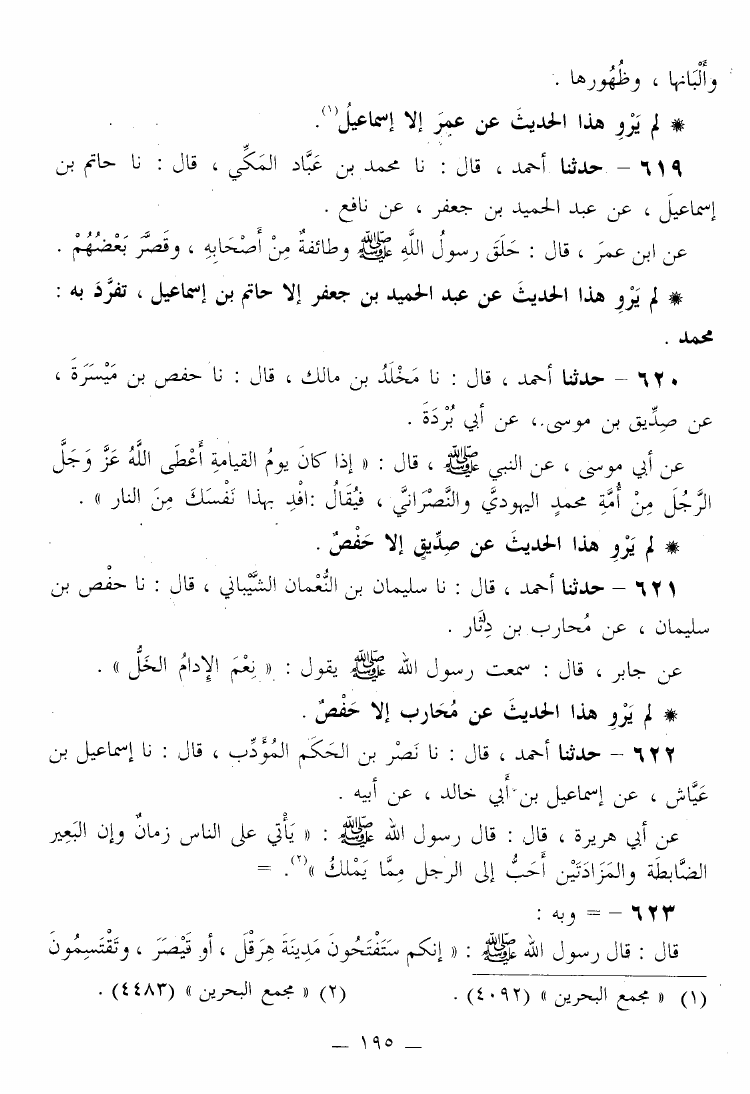 وأَلْبَانها ، وظُهُورها .
* لم يَرْوِ هذا الحديثَ عن عمِرَ إلا إسماعيلُ(١).
٦١٩ – حدثنا أحمد ، قال : نا محمد بن عَبَّاد المَكِّي ، قال : نا حاتم بن
إسماعيلَ ، عن عبد الحميد بن جعفر ، عن نافع .
عن ابن عمرَ ، قال : حَلَقَ رسولُ اللَّهِ ﷺ وطائفةٌ مِنْ أَصْحَابِهِ ، وقَصَّرَ بَعْضُهُمْ .
* لم يَرْوِ هذا الحديثَ عن عبد الحميد بن جعفر إلا حاتم بن إسماعيل ، تفرَّدَ به :
محمد .
٦٢٠ – حدثنا أحمد ، قال : نا مَخْلَدُ بن مالك ، قال : نا حفص بن مَيْسَرَةَ ،
عن صِدِّيق بن موسى ، عن أبي بُرْدَةَ .
عن أبي موسى ، عن النبي ﷺ ، قال : « إذا كانَ يومُ القيامةِ أَعْطَى اللَّهُ عَزَّ وَجَلَّ
الرَّجُلَ مِنْ أُمَّةِ محمدٍ اليهوديَّ والنَّصْرَانيَّ ، فيُقَالُ :افْدِ بهذا نَفْسَكَ مِنَ النار » .
* لم يَرْوِ هذا الحديثَ عن صِدِّيقٍ إلا حَفْصٌ .
٦٢١ – حدثنا أحمد ، قال : نا سليمان بن النُّعْمان الشَّيْباني ، قال : نا حفْص بن
سليمان ، عن مُحارب بن دِثَار .
عن جابر ، قال : سمعت رسول الله ﷺ يقول : « نِعْمَ الإدامُ الخَلُّ » .
* لم يَرْوِ هذا الحديثَ عن مُحَارب إلا حَفْصٌ .
٦٢٢ – حدثنا أحمد ، قال : نا نَصْر بن الحَكَم المُؤَدِّب ، قال : نا إسماعيل بن
عَيَّاش ، عن إسماعيل بن أَبي خالد ، عن أبيه .
عن أبي هريرة ، قال : قال رسول الله ﷺ : « يَأْتي على الناس زمانٌ وإن البَعِير
الضَّابطَة والمَزَادَتَيْن أَحَبُّ إلى الرجل مِمَّا يَمْلكُ »(٢). =
٦٢٣ – = وبه :
قال : قال رسول الله ﷺ : « إنكم ستَفْتَحُونَ مَدِينَةَ هِرَقْلَ ، أو قَيْصَرَ ، وتَقْتَسِمُونَ
(١) « مجمع البحرين » (٤٠٩٢) . (٢) « مجمع البحرين » (٤٤٨٣) .
– ١٩٥ –